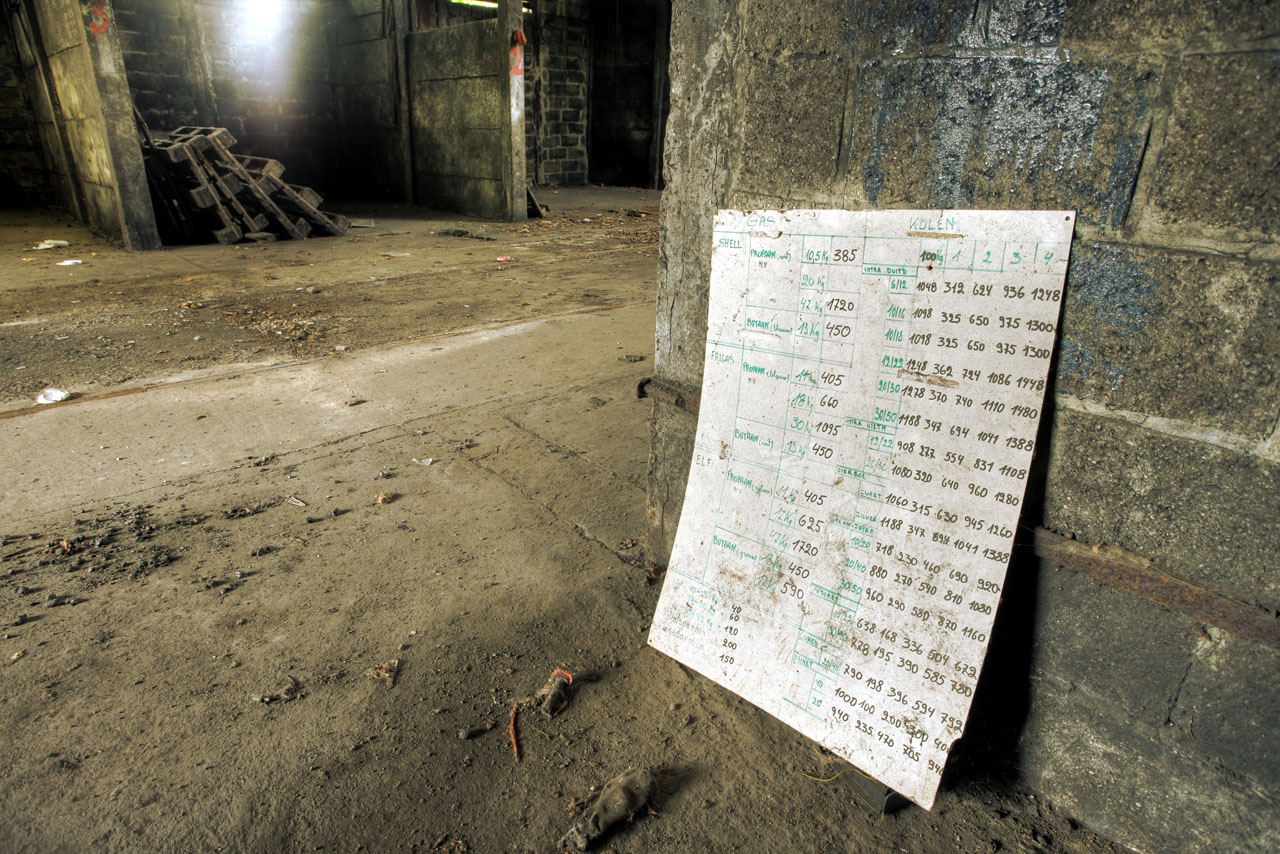 5
2
GAS
SHELL PROPAAN 10,5 Kg 385
NV 20 kg
42 kg 1720
BUTAAN 13 kg 450
FRIGAS PROPAAN 405
NV 18 kg 660
30 k 1095
BUTAAN 13 k 450
ELF PROPAAN 405
NV 625
1720
BUTAAN 450
590
40
60
120
200
150
KOLEN
100 kg 1 2 3 4
6/12 1048 312 624 936 1248
10/16 1098 325 650 975 1300
10/18 1098 325 650 975 1300
12/22 1248 362 724 1086 1448
20/30 1278 370 740 1110 1480
30/50 1188 347 694 1041 1388
12/22 908 277 554 831 1108
20/30 1080 320 640 960 1280
ZWART 1060 315 630 945 1260
ZILVER 1188 347 694 1041 1388
10/20 718 230 460 690 920
20/40 880 270 540 810 1080
30/50 960 290 580 870 1160
638 168 336 504 672
778 195 390 585 780
790 198 396 594 792
10 1000 100 200 300 400
25 940 235 470 705 940